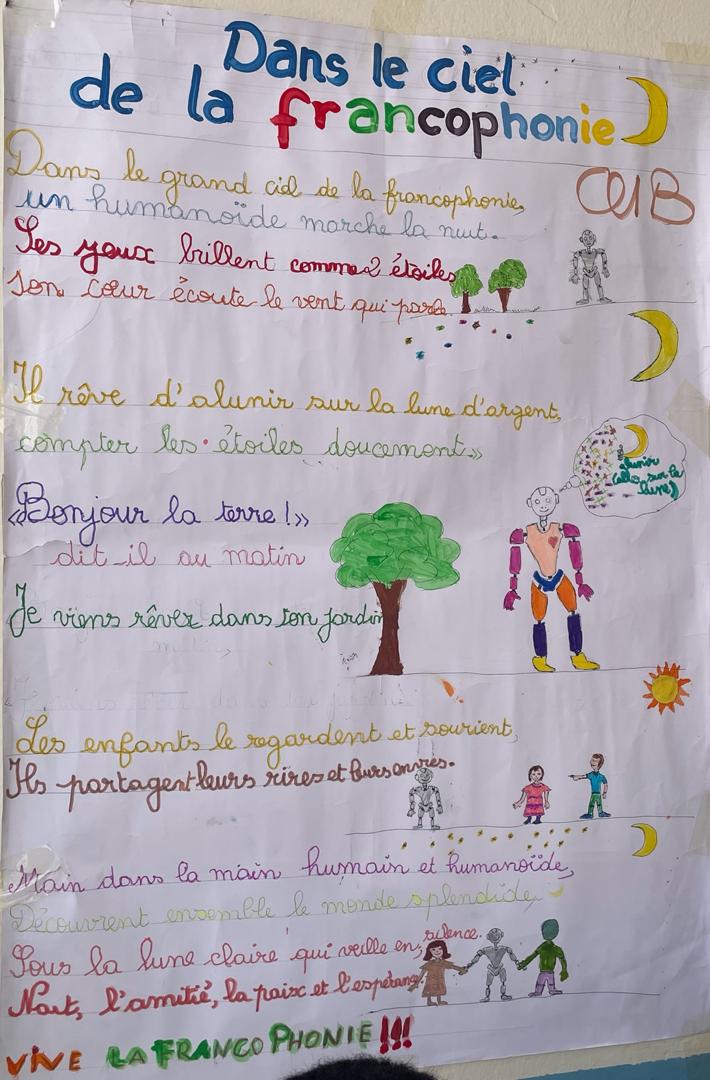 Dans le ciel
de la francophonie
Dans le grand ciel de la francophonie,
un humanoïde marche la nuit.
Ses yeux brillent comme 2 étoiles
son cœur écoute le vent qui parle.
Il rêve d'alunir sur la lune d'argent,
compter les étoiles doucement.»
alunir
sur la
lune)
«Bonjour la terre !»
dit-il au matin
Je viens rêver dans ton jardin
Les enfants le regardent et sourient,
Ils partagent leurs rires et leurs envies.
Main dans la main humain et humanoïde,
Découvrent ensemble le monde splendide,
Sous la lune claire qui veille en silence.
Nait, l'amitié, la paix et l'espérance
VIVE LA FRANCOPHONIE !!!